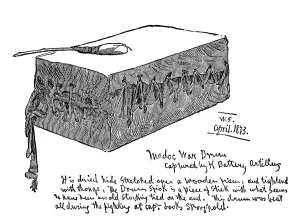 W.S.
April. 1873.
Modoc War Drum
captured by K Battery Artillery
It is dried hide stretched over a wooden frame, and tightened
with thongs. The Drum stick is a piece of stick with what seems
to have been an old stocking tied on the end. This drum was beat
all during the fighting at Capt. Jack's Stronghold.